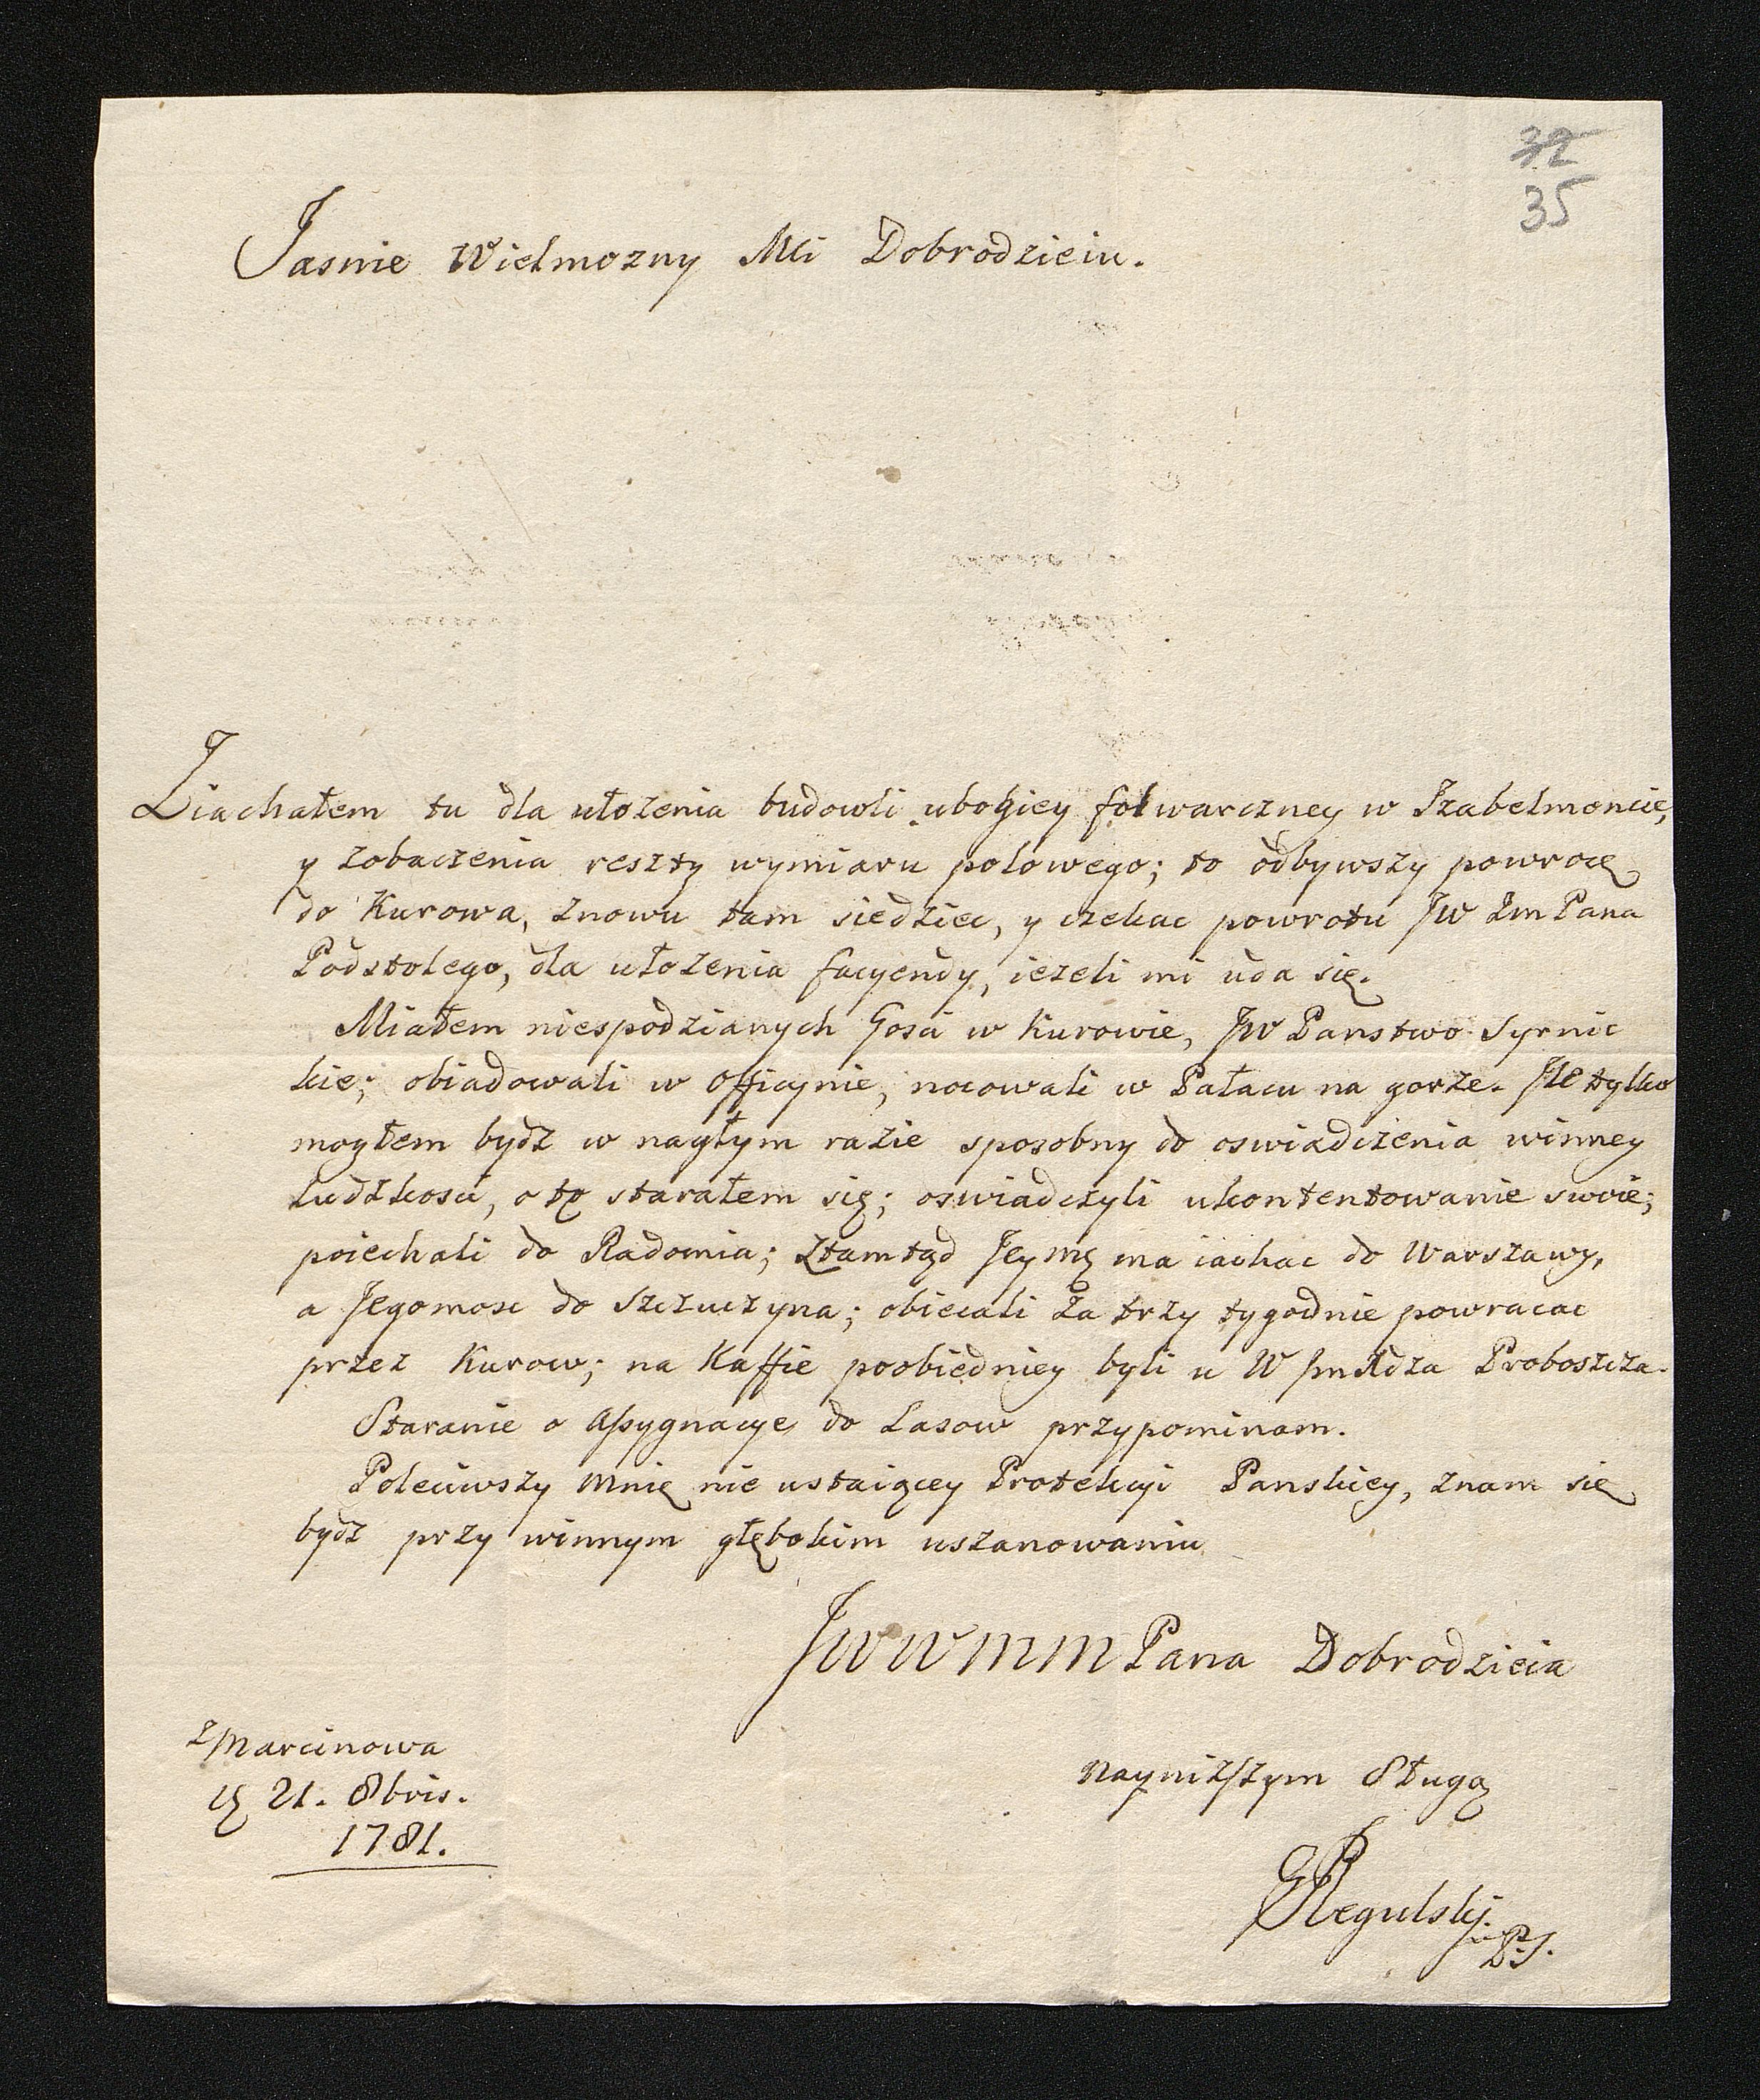 32
35
Jasnie Wielmozny Mci Dobrodzieiu.
Ziachałem tu dla ułozenia budowli ubogiey folwarczney w Izabelmoncie,
y zobaczenia reszty wymiaru polowego; to odbywszy powrocę
do Kurowa, znowu tam siedziec, y czekac powrotu JW Im Pana
Podstolego, dla ułozenia facyendy, iezeli mi uda się.
Miałem niespodzianych Gosci w Kurowie, JW Panstwo Syrnic
kie; obiadowali w Officynie, nocowali w Pałacu na gorze. Ile tylko
mogłem bydz w nagłym razie sposobny do oswiadczenia winney
ludzkosci, o to starałem się; oswiadczyli ukontentowanie swoie;
poiechali do Radomia; ztamtąd Jeymę ma iachac do Warszawy,
a Jegomosc do Szczuczyna; obiecali za trzy tygodnie powracac
przez Kurow; na Kaffie poobiedniey byli u W Im Xdza Proboszcza.
Staranie o Assygnacye do Lasow przypominam.
Poleciwszy mnie nie ustaiącey Protekcyi Panskiey, znam się
bydz przy winnym głębokim uszanowaniu
JWWMM Pana Dobrodzieia
z Marcinowa
21. 8bris.
1781.
Nayniższym Sługą
Regulski